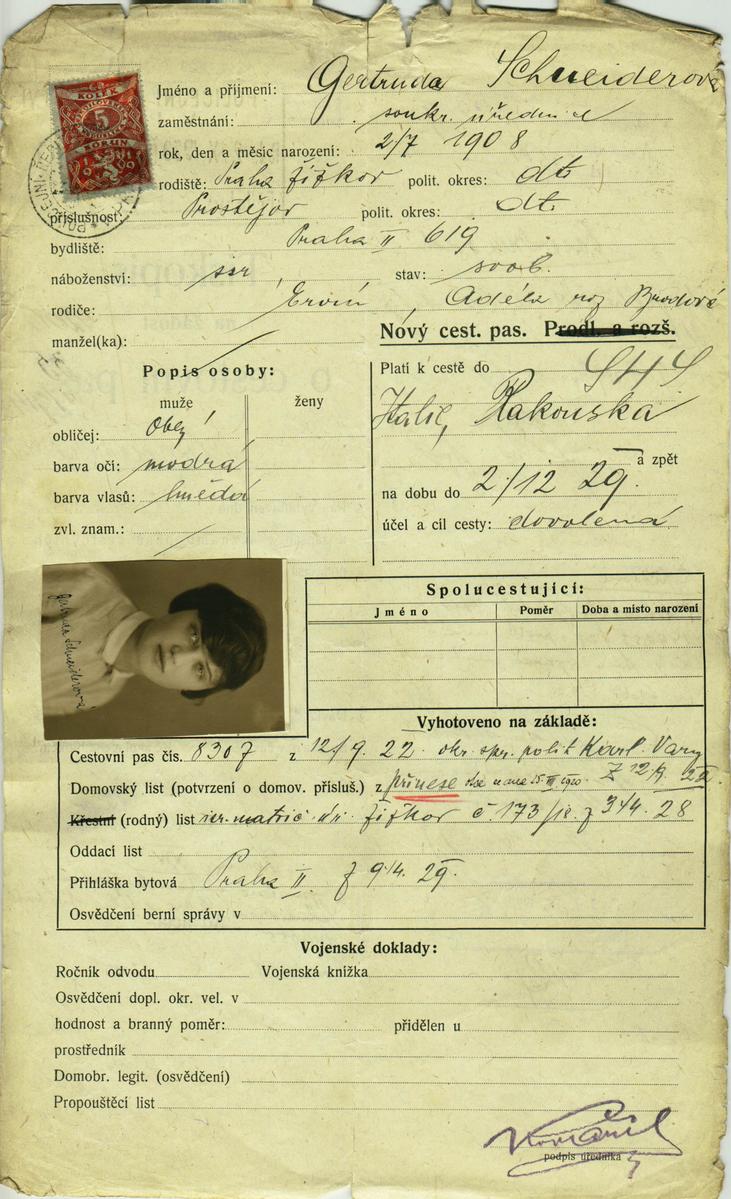 KOLEK
5
KORUN
1919
Jméno a příjmení: Gertruda Schneiderová
zaměstnání: soukr. úřednice
rok, den a měsíc narození: 2/7 1908
rodiště: Praha Žižkov polit. okres: dt
příslušnost: Prostějov polit. okres: dt.
bydliště: Praha II 619
náboženství: isr, stav: svob.
rodiče: Ervín, Adéla roz Brodová
manžel(ka):
Nový cest. pas. Prodl. a rozš.
Popis osoby:
muže ženy
obličej: Obez
barva očí: modrá
barva vlasů: hnědá
zvl. znam.:
Platí k cestě do SHS
Italie, Rakouska
a zpět
na dobu do 2/12 29.
účel a cíl cesty: dovolená
Gertruda Schneiderová
Spolucestující:
Jméno Poměr Doba a místo narození
Vyhotoveno na základě:
Cestovní pas čís. 8307 z 12/9. 22. okr. spr. polit Karl. Vary
Domovský list (potvrzení o domov. přísluš.) z přinese
Křestní (rodný) list isr. matrič. úř. Žižkov č. 173/18. z 3/4. 28
Oddací list
Přihláška bytová Praha II. z 9/4. 29.
Osvědčení berní správy v
Vojenské doklady:
Ročník odvodu Vojenská knížka
Osvědčení dopl. okr. vel. v
hodnost a branný poměr: přidělen u
prostředník
Domobr. legit. (osvědčení)
Propouštěcí list
podpis úředníka